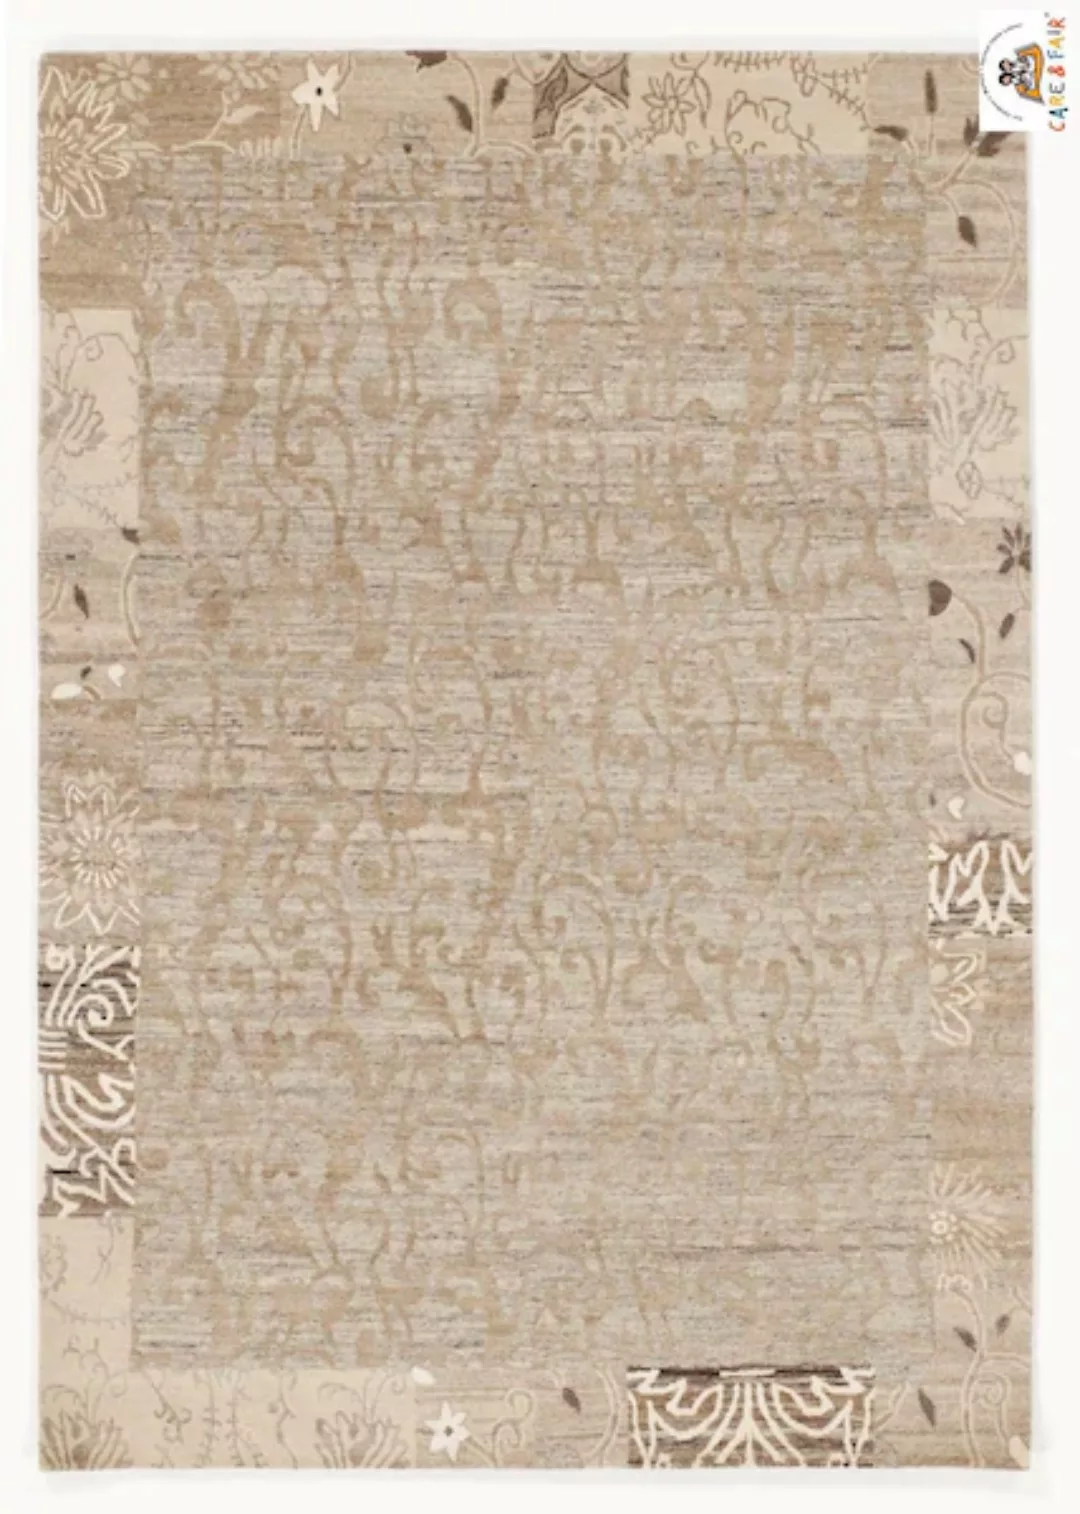 CARE & FAIR